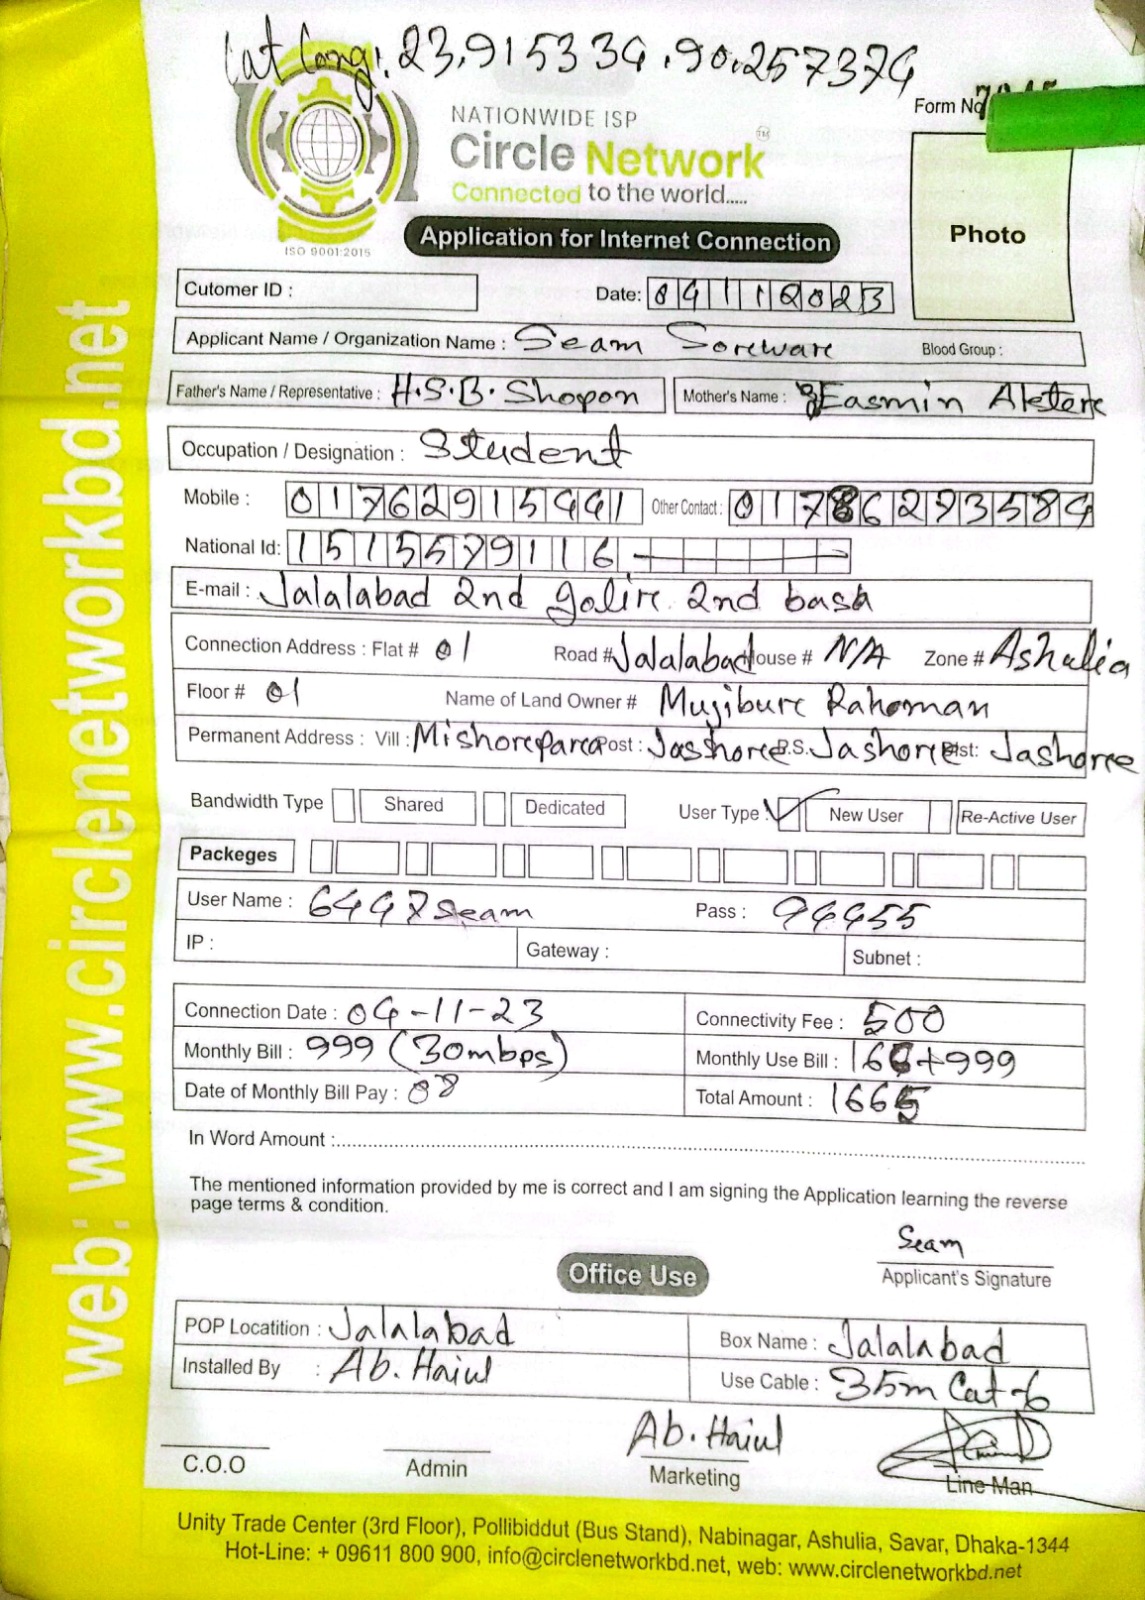 Lat Long: 23.915334, 90.257374
Form No
NATIONWIDE ISP
TM
Circle Network
Connected to the world.....
ISO 9001:2015
Application for Internet Connection
Photo
Cutomer ID :
Date: 04112023
Applicant Name / Organization Name : Seam Soreware
Blood Group :
Father's Name / Representative : H.S.B. Shopon
Mother's Name : Easmin Aktere
Occupation / Designation : Student
Mobile : 01762915441 Other Contact : 01786293584
National Id: 1515579116
E-mail : Jalalabad 2nd golir 2nd basa
Connection Address : Flat # 01 Road # Jalalabad House # N/A Zone # Ashulia
Floor # 01 Name of Land Owner # Mujibure Rahoman
Permanent Address : Vill : Mishorepara Post : Jasshore P.S. Jashore Dist: Jashoree
Bandwidth Type Shared Dedicated User Type : New User Re-Active User
Packeges
User Name : 6447seam Pass : 94455
IP : Gateway : Subnet :
Connection Date : 04-11-23 Connectivity Fee : 500
Monthly Bill : 999 (30mbps) Monthly Use Bill : 166+999
Date of Monthly Bill Pay : 08 Total Amount : 1665
In Word Amount :
The mentioned information provided by me is correct and I am signing the Application learning the reverse
page terms & condition.
Seam
Applicant's Signature
Office Use
POP Locatition : Jalalabad Box Name : Jalalabad
Installed By : Ab. Haiul Use Cable : 35m Cat-6
Ab. Haiul
C.O.O Admin Marketing Line Man
Unity Trade Center (3rd Floor), Pollibiddut (Bus Stand), Nabinagar, Ashulia, Savar, Dhaka-1344
Hot-Line: + 09611 800 900, info@circlenetworkbd.net, web: www.circlenetworkbd.net
web: www.circlenetworkbd.net